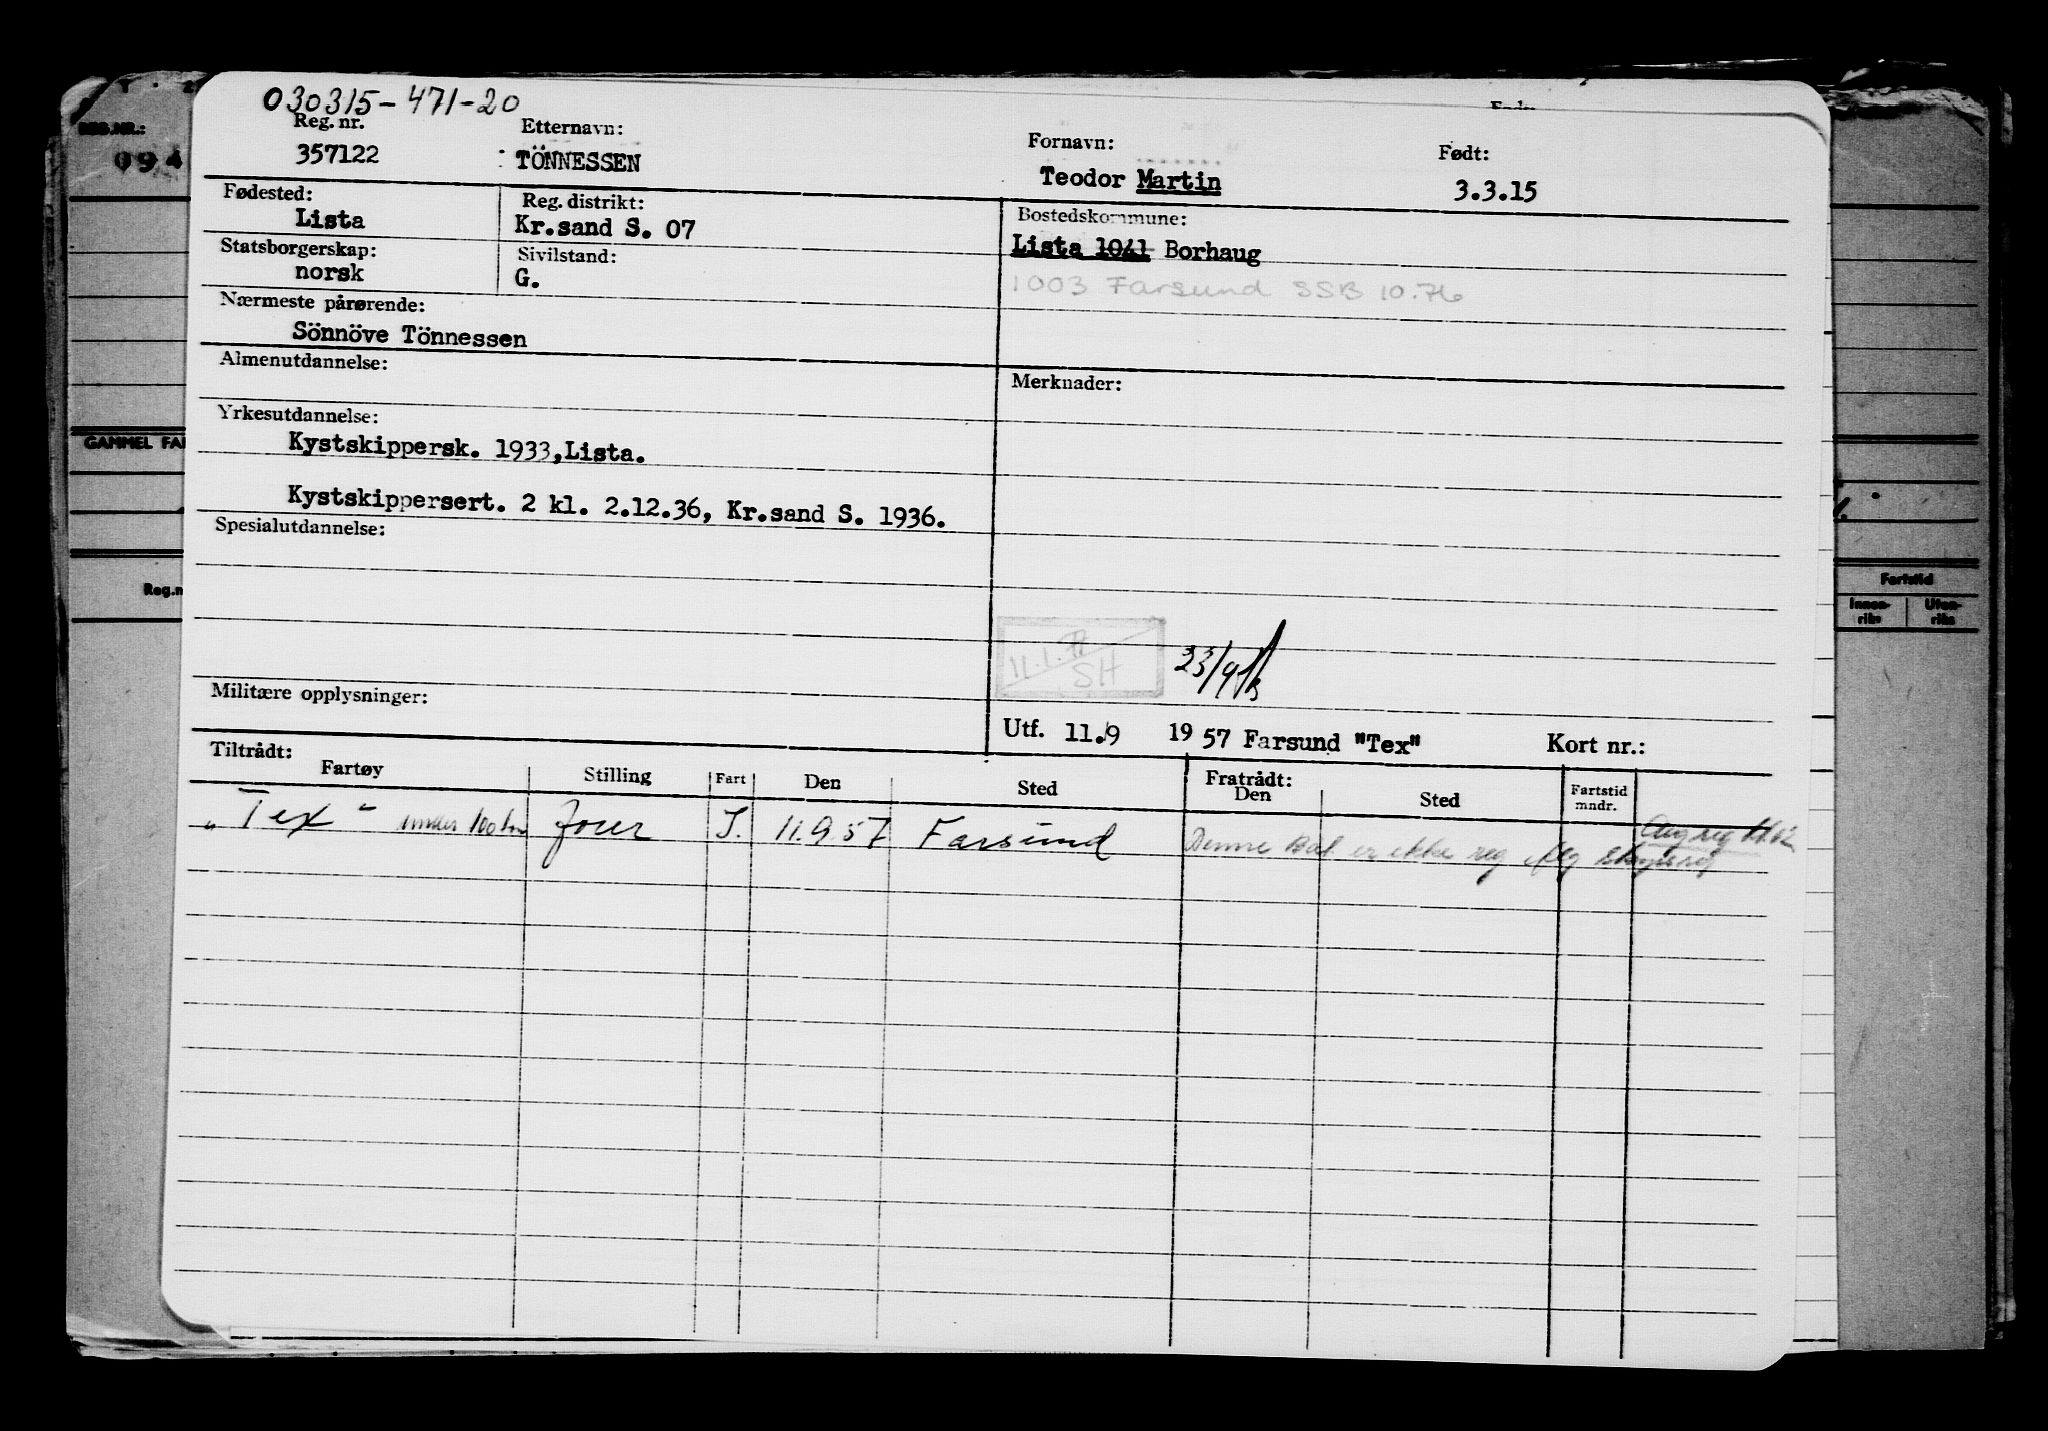 030315-471-20
Reg. nr. Etternavn: Fornavn: Født:
357122 TÖNNESSEN Teodor Martin 3.3.15
Fødested: Reg. distrikt: Bostedskommune:
Lista Kr.sand S. 07 Lista 1041 Borhaug
Statsborgerskap: Sivilstand:
norsk G. 1003 Farsund SSB 10.76
Nærmeste pårørende:
Sönnöve Tönnessen
Almenutdannelse: Merknader:
Yrkesutdannelse:
Kystskippersk. 1933,Lista.
Kystskippersert. 2 kl. 2.12.36, Kr.sand S. 1936.
Spesialutdannelse:
SH 23/9
Militære opplysninger:
Utf. 11.9 1957 Farsund "Tex" Kort nr.:
Tiltrådt: Fratrådt:
Fartøy Stilling Fart Den Sted Den Sted Fartstid mndr.
"Tex" under 100 I. 11.9.57 Farsund Denne er ikke reg
REG.NR.:
094
GAMMEL FA
Reg.n
Fartstid
Innen-riks Uten-riks